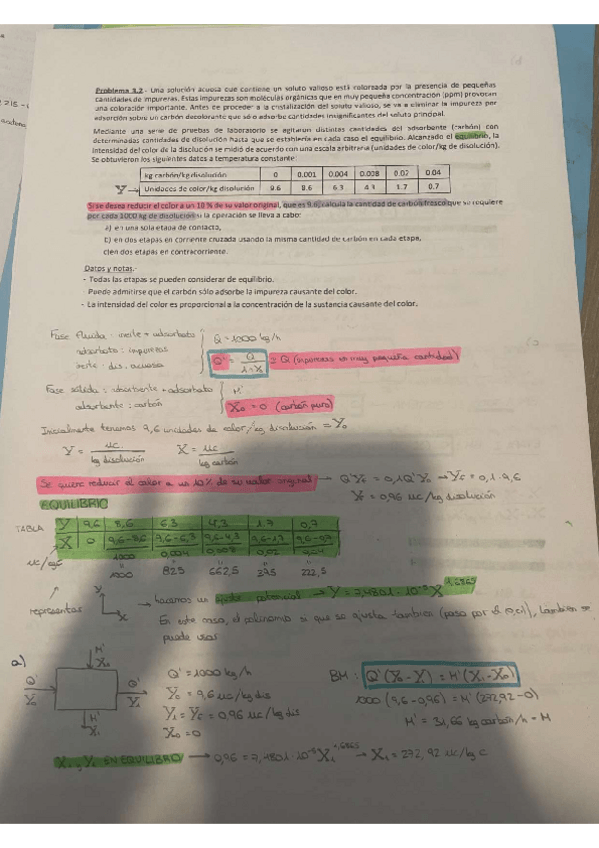 Problema 3.2.- Una solución acuosa que contiene un soluto valioso está coloreada por la presencia de pequeñas
cantidades de impurezas. Estas impurezas son moléculas orgánicas que en muy pequeña concentración (ppm) provocan
una coloración importante. Antes de proceder a la cristalización del soluto valioso, se va a eliminar la impureza por
adsorción sobre un carbón decolorante que sólo adsorbe cantidades insignificantes del soluto principal.
Mediante una serie de pruebas de laboratorio se agitaron distintas cantidades del adsorbente (carbón) con
determinadas cantidades de disolución hasta que se establecía en cada caso el equilibrio. Alcanzado el equilibrio, la
intensidad del color de la disolución se midió de acuerdo con una escala arbitraria (unidades de color/kg de disolución).
Se obtuvieron los siguientes datos a temperatura constante:
kg carbón/kg disolución 0 0,001 0.004 0.008 0.02 0.04
Y → Unidades de color/kg disolución 9.6 8.6 6.3 4.3 1.7 0.7
Si se desea reducir el color a un 10 % de su valor original, que es 9.6, calcula la cantidad de carbón fresco que se requiere
por cada 1000 kg de disolución si la operación se lleva a cabo:
a) en una sola etapa de contacto,
b) en dos etapas en corriente cruzada usando la misma cantidad de carbón en cada etapa,
c) en dos etapas en contracorriente.
Datos y notas.-
- Todas las etapas se pueden considerar de equilibrio.
Puede admitirse que el carbón sólo adsorbe la impureza causante del color.
- La intensidad del color es proporcional a la concentración de la sustancia causante del color.
Fase fluida: inerte + adsorbato
adsorbato: impurezas
inerte: dis. acuosa
Q = 1000 kg/h
Q' = Q / 1+X ≈ Q (impurezas en muy pequeña cantidad)
Fase sólida: adsorbente + adsorbato
adsorbente: carbón
M'
X₀ = 0 (carbón puro)
Inicialmente tenemos 9,6 unidades de color/kg disolución = Y₀
Y = uc / kg disolución X = uc / kg carbón
Se quiere reducir el color a un 10% de su valor original → Q'Yf = 0,1Q'Y₀ → Yf = 0,1·9,6
Yf = 0,96 uc/kg disolución
EQUILIBRIO
TABLA Y 9,6 8,6 6,3 4,3 1,7 0,7
X 0 9,6-8,6 9,6-6,3 9,6-4,3 9,6-1,7 9,6-0,7
0,004 0,008 0,02 0,04
1000 825 662,5 395 222,5
representas Y X → hacemos un ajuste potencial → Y = 7,4801·10⁻⁵ X^1,6865
En este caso, el polinomio si que se ajusta también (pasa por el 0,0), también se
puede usar
a)
M' X₀
Q' Y₀
Q' Y₁
M' X₁
Q' = 1000 kg/h
Y₀ = 9,6 uc/kg dis
Y₁ = Yf = 0,96 uc/kg dis
X₀ = 0
BM: Q'(Y₀ - Y) = M'(X₁ - X₀)
1000 (9,6 - 0,96) = M' (272,92 - 0)
M' = 31,66 kg carbón/h = M
X₁, Y₁ EN EQUILIBRIO → 0,96 = 7,4801·10⁻⁵ X₁^1,6865 → X₁ = 272,92 uc/kg c